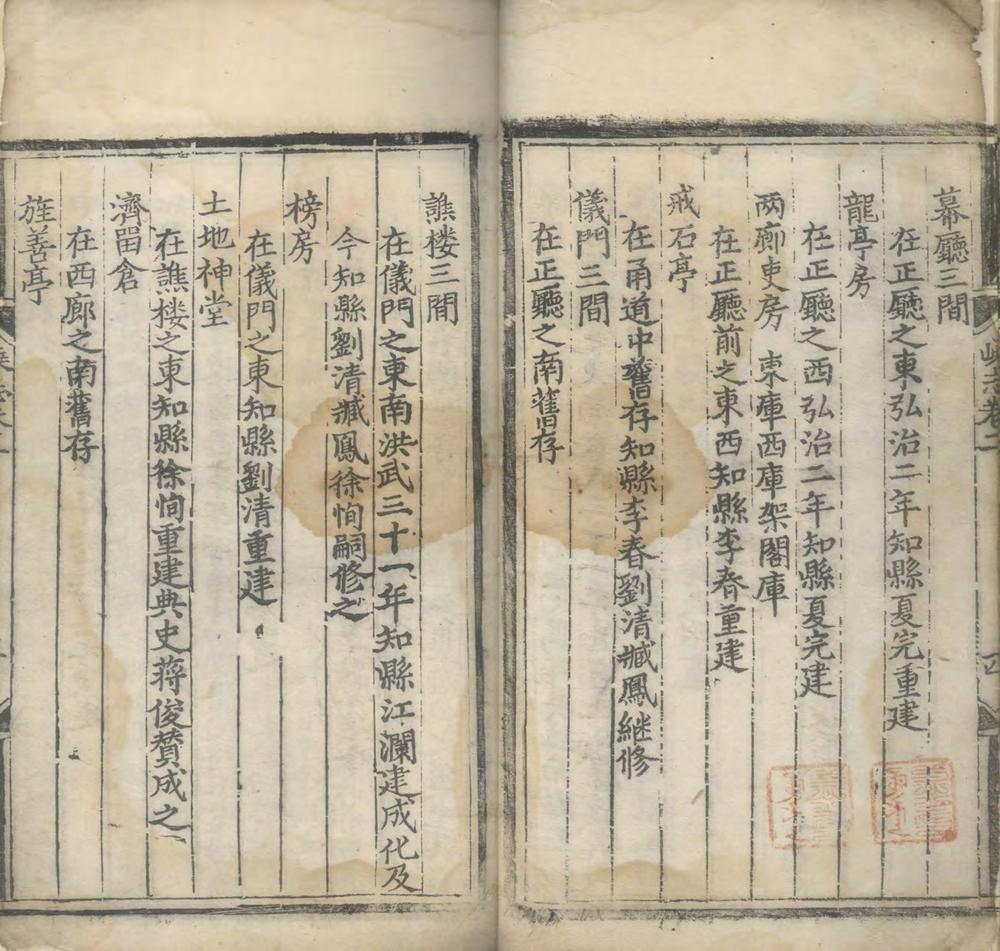 幕廳三間
在正廳之東弘治二年知縣夏完重建
龍亭房
在正廳之西弘治二年知縣夏完建
两廊吏房 東庫西庫架閣庫
在正廳前之東西知縣李春重建
戒石亭
在甬道中舊存知縣李春劉清臧鳳継修
儀門三間
在正廳之南舊存
譙楼三間
在儀門之東南洪武三十一年知縣江瀾建成化及
今知縣劉清臧鳳徐恂嗣修之
榜房
在儀門之東知縣劉清重建
土地神堂
在譙楼之東知縣徐恂重建典史蒋俊賛成之
濟留倉
在西廊之南舊存
旌善亭